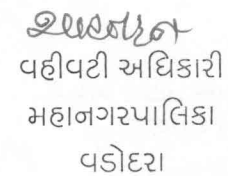 વહીવટી અધિકારી
મહાનગરપાલિકા
વડોદરા